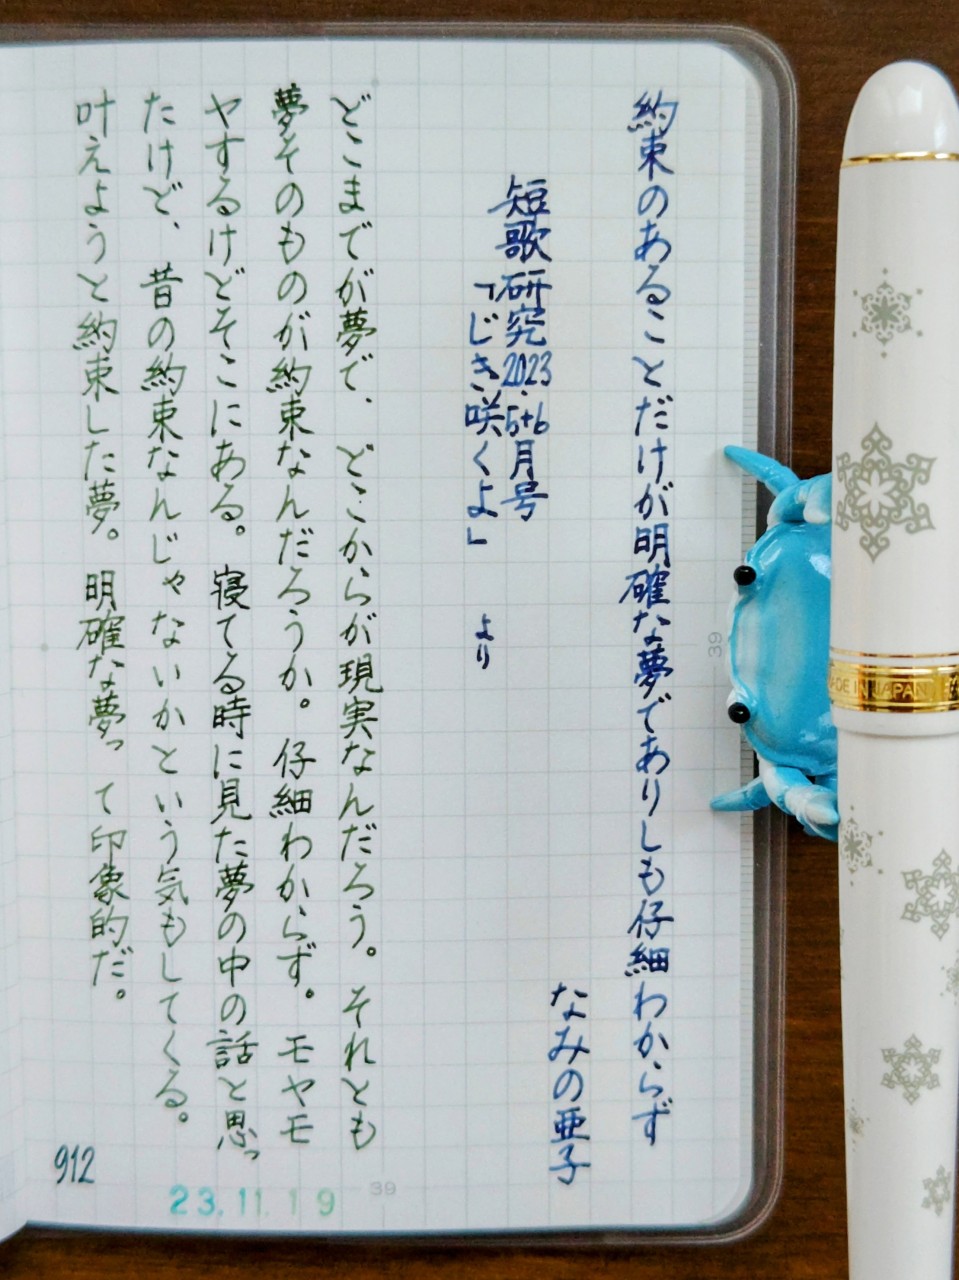 約束のあることだけが明確な夢でありしも仔細わからず
なみの亜子
短歌研究2023.5+6月号
「じき咲くよ」 より
どこまでが夢で、どこからが現実なんだろう。それとも
夢そのものが約束なんだろうか。仔細わからず。モヤモ
ヤするけどそこにある。寝てる時に見た夢の中の話と思っ
たけど、昔の約束なんじゃないかという気もしてくる。
叶えようと約束した夢。明確な夢って印象的だ。
912
23.11.19
39
39
MADE IN JAPAN